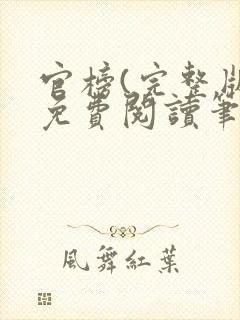 官榜(完整版
免費閱讀筆
風舞紅葉